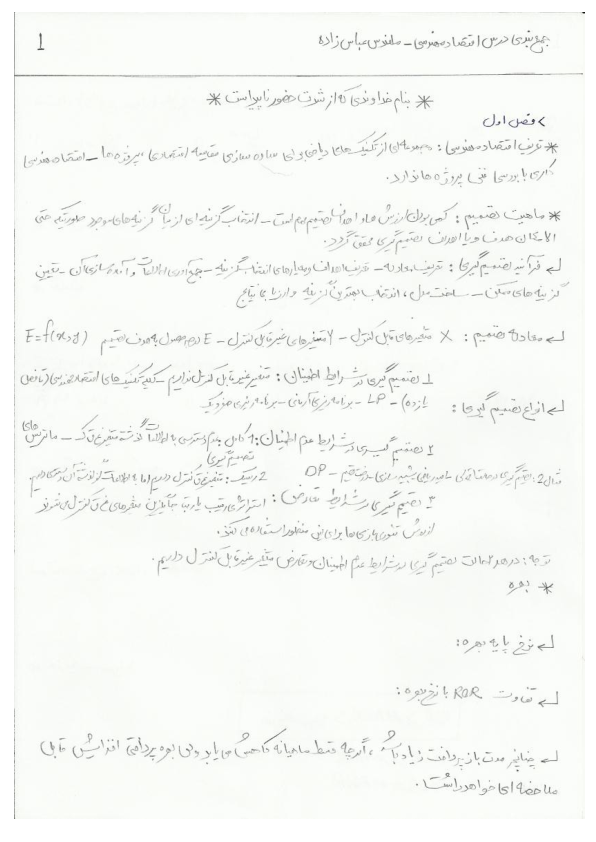 جمع بندی درس اقتصاد مهندسی - مهندس عباس زاده
1
* بنام خداوندی که از شدت حضور ناپیداست *
> فصل اول
* تعریف اقتصاد مهندسی: مجموعه ای از تکنیک های ریاضی برای ساده سازی مقایسه اقتصادی پروژه ها - اقتصاد مهندسی
کاری با بررسی فنی پروژه ها ندارد.
* ماهیت تصمیم: کمی بودن ارزش ها و اهداف تصمیم مهم است - انتخاب گزینه ای از میان گزینه های موجود به صورتیکه حتی
الامکان هدف و یا اهداف تصمیم گیری محقق گردد.
فرآیند تصمیم گیری: تعریف مساله - تعریف اهداف و معیارهای انتخاب گزینه - جمع آوری اطلاعات و آماده سازی آن - تعیین
گزینه های ممکن - ساخت مدل، انتخاب بهترین گزینه و ارزیابی نتایج
معادله تصمیم: X متغیرهای قابل کنترل - Y متغیرهای غیر قابل کنترل - E درجه حصول به هدف تصمیم E=f(x,y)
1 تصمیم گیری در شرایط اطمینان: متغیر غیر قابل کنترل نداریم - کلیه تکنیک های اقتصاد مهندسی (تا فصل
یازده) - LP - برنامه ریزی آرمانی - برنامه ریزی
انواع تصمیم گیری:
2 تصمیم گیری در شرایط عدم اطمینان: 1 کامل: عدم دسترسی به اطلاعات گذشته متغیر غ ق ک - ماتریس های
تصمیم گیری
مثال 2: تصمیم گیری در حالت - شبیه سازی - درخت تصمیم - DP 2 ریسک: متغیر غ ق کنترل داریم اما به اطلاعات گذشته آن دسترسی داریم
3 تصمیم گیری در شرایط تعارض: استراتژی رقیب یا رقبا جایگزین متغیرهای غ ق کنترل می شوند
از روش تئوری بازی ها برای این منظور استفاده می کنند.
توجه: در هر دو حالت تصمیم گیری در شرایط عدم اطمینان و تعارض متغیر غیر قابل کنترل داریم.
* بهره
نرخ پایه بهره:
تفاوت ROR با نرخ بهره:
چنانچه مدت باز پرداخت زیاد باشد، اگرچه قسط ماهیانه کاهش می یابد ولی بهره پرداختی افزایش قابل
ملاحضه ای خواهد داشت.